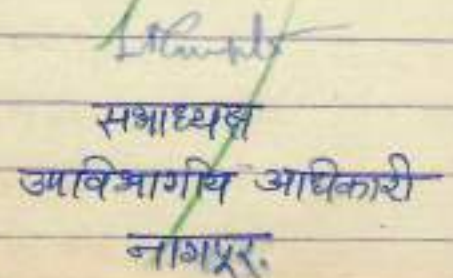 सभाध्यक्ष
उपविभागीय अधिकारी
नागपूर.